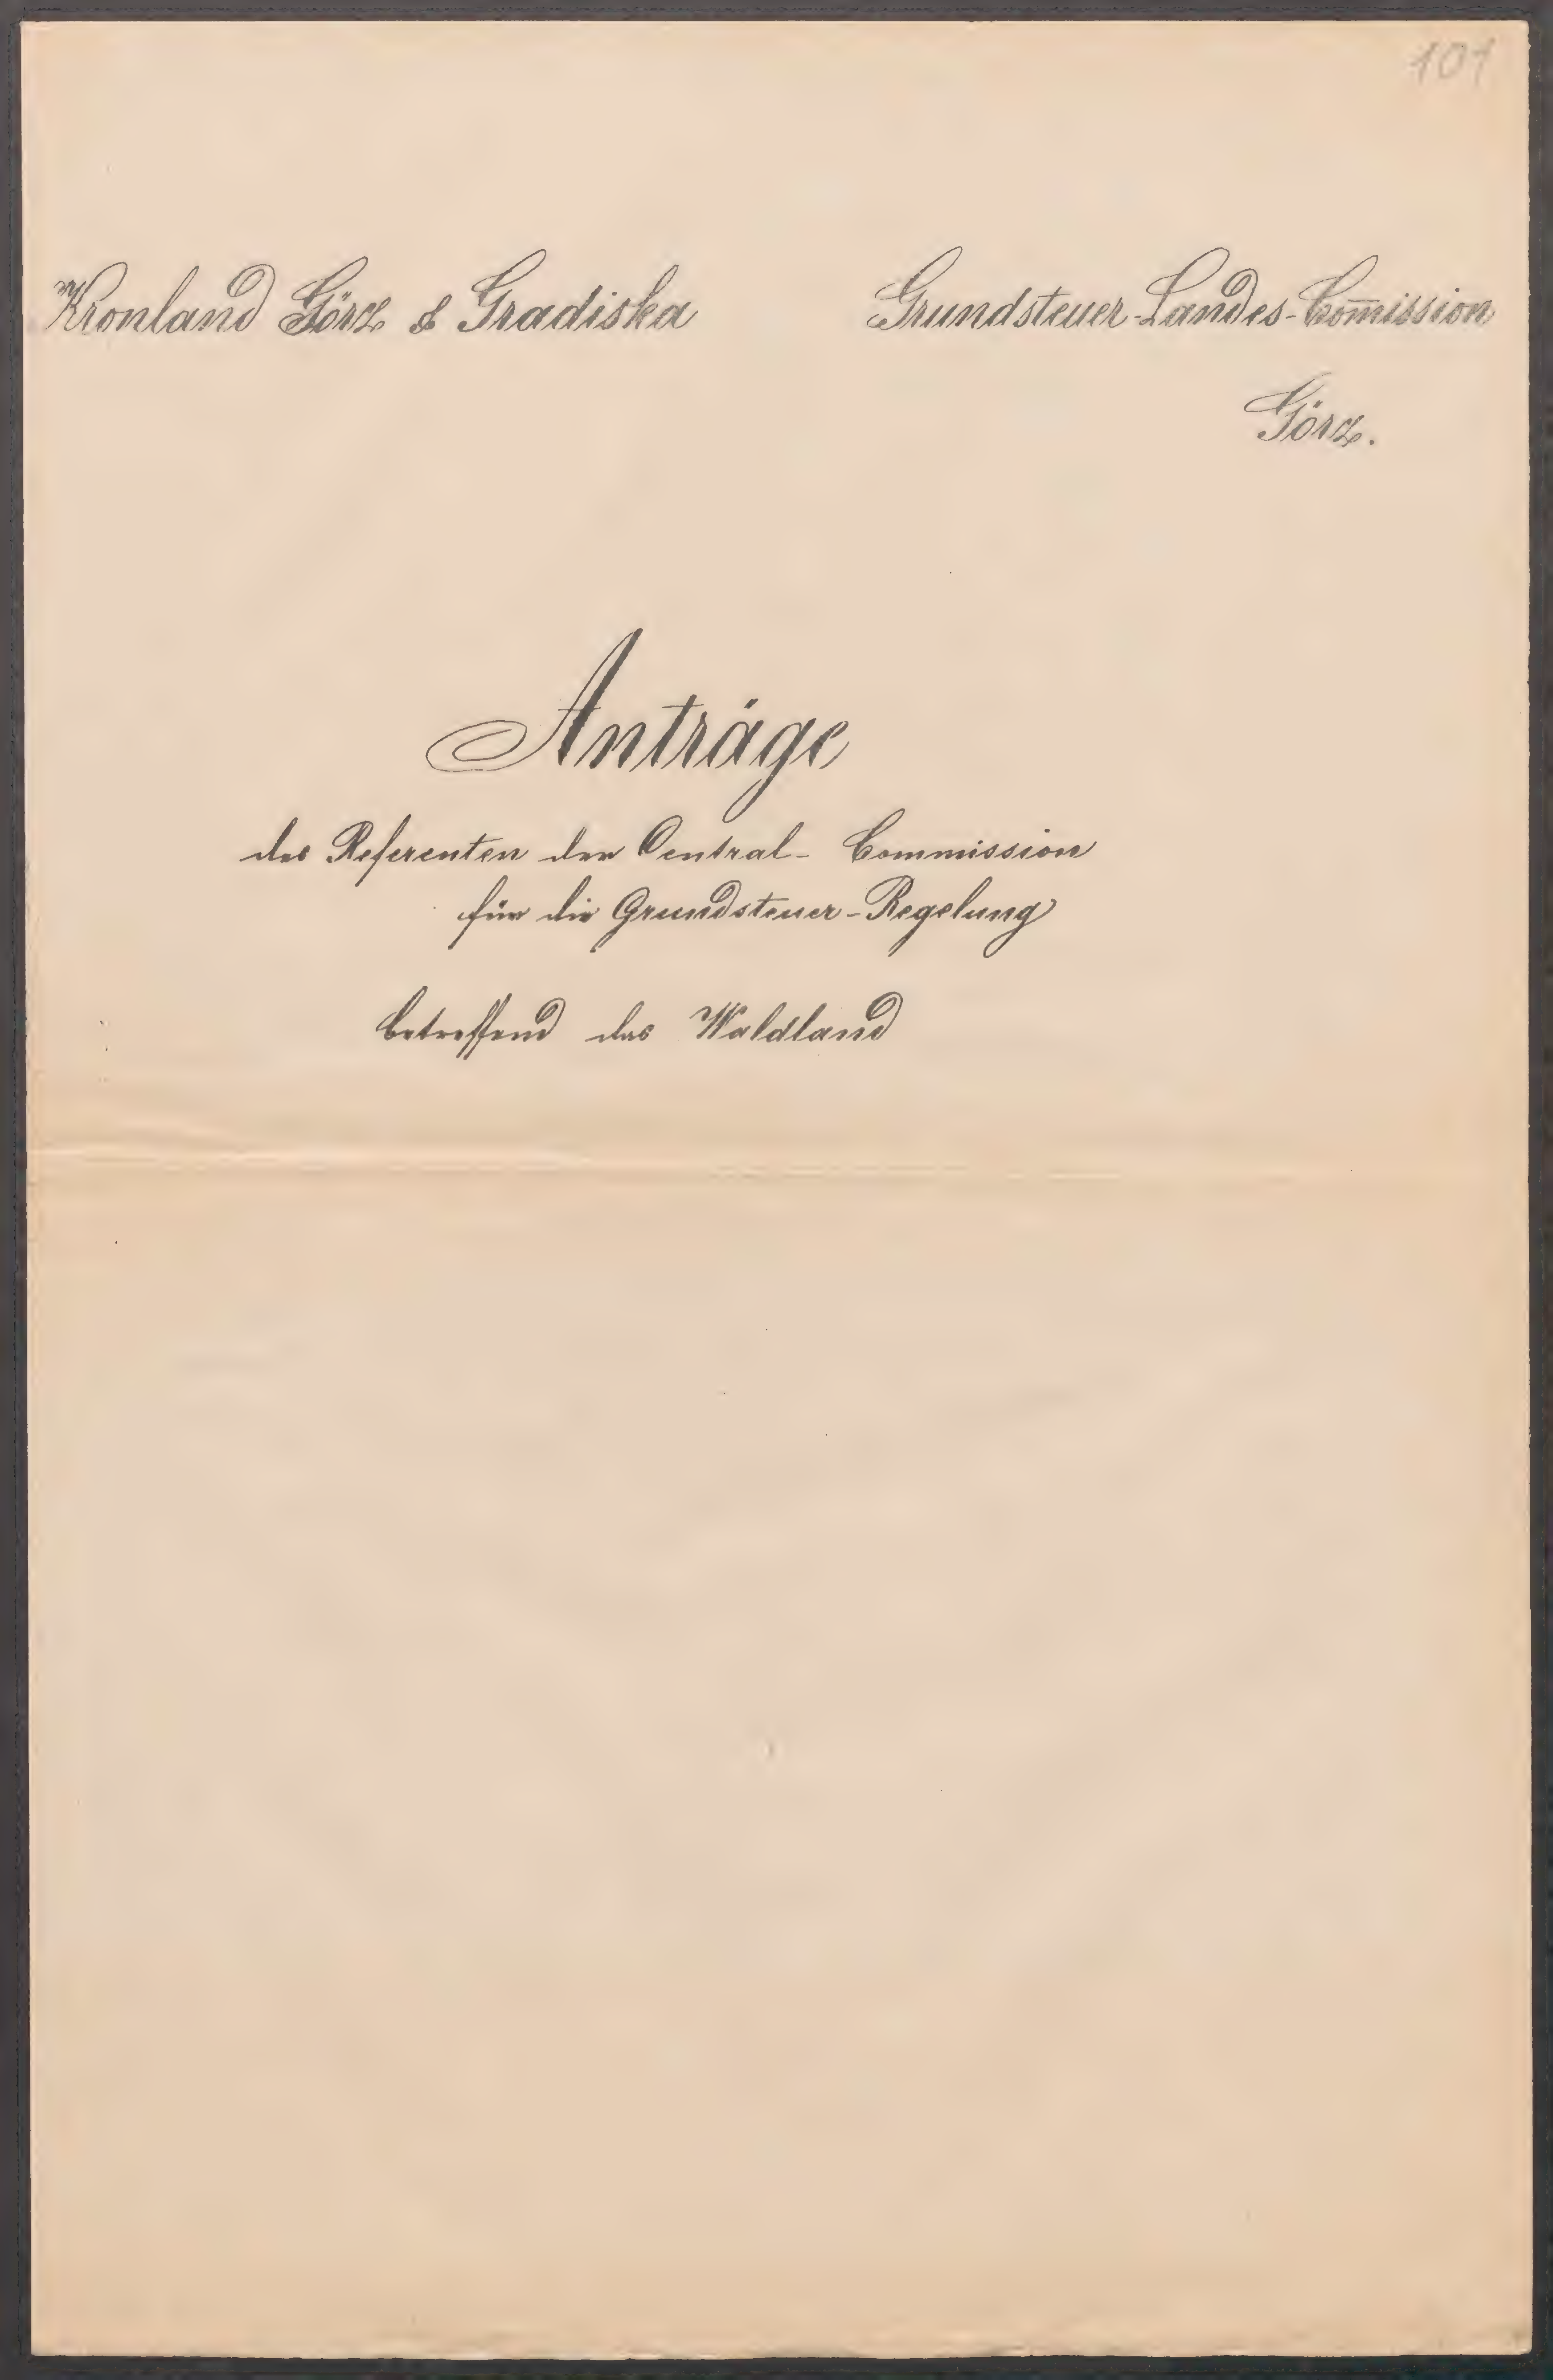 101
Kronland Görz & Gradiska
Grundsteuer-Landes-Com̄ission
Görz.
Anträge
des Referenten der Central-Commission
für die Grundsteuer-Regelung
betreffend das Waldland